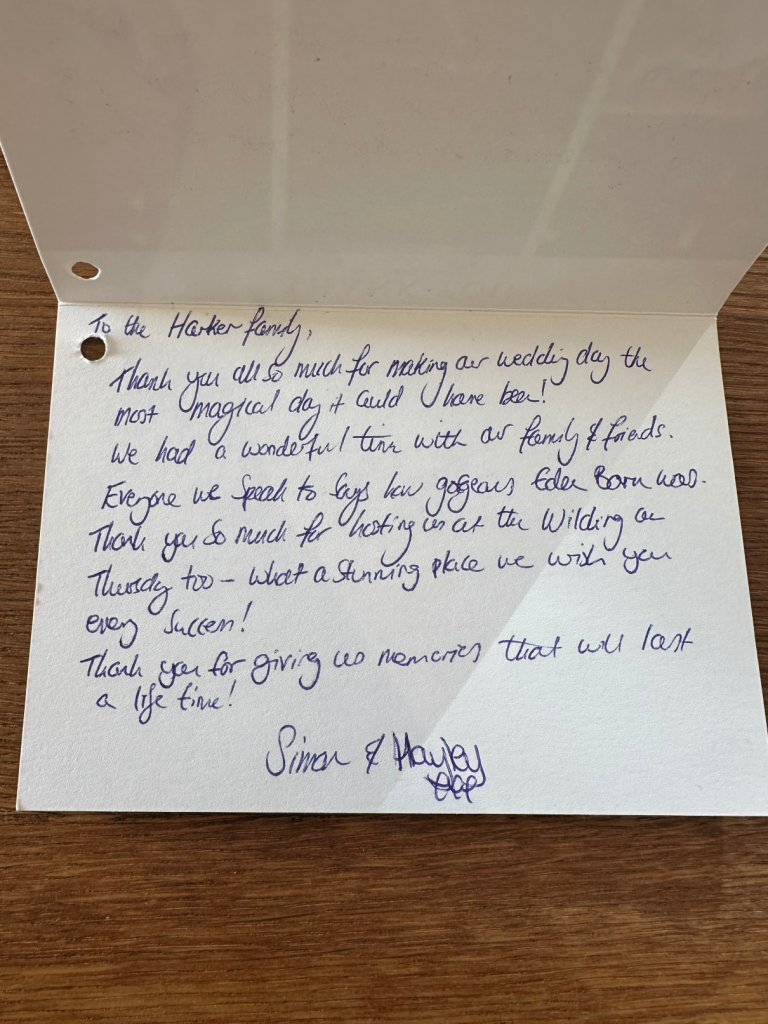 To the Harker family,
Thank you all so much for making our wedding day the
most magical day it could have been!
We had a wonderful time with our family & friends.
Everyone we speak to says how gorgeous Eden Barn was.
Thank you so much for hosting us at the Wilding on
Thursday too – what a stunning place we wish you
every success!
Thank you for giving us memories that will last
a life time!
Simon & Hayley